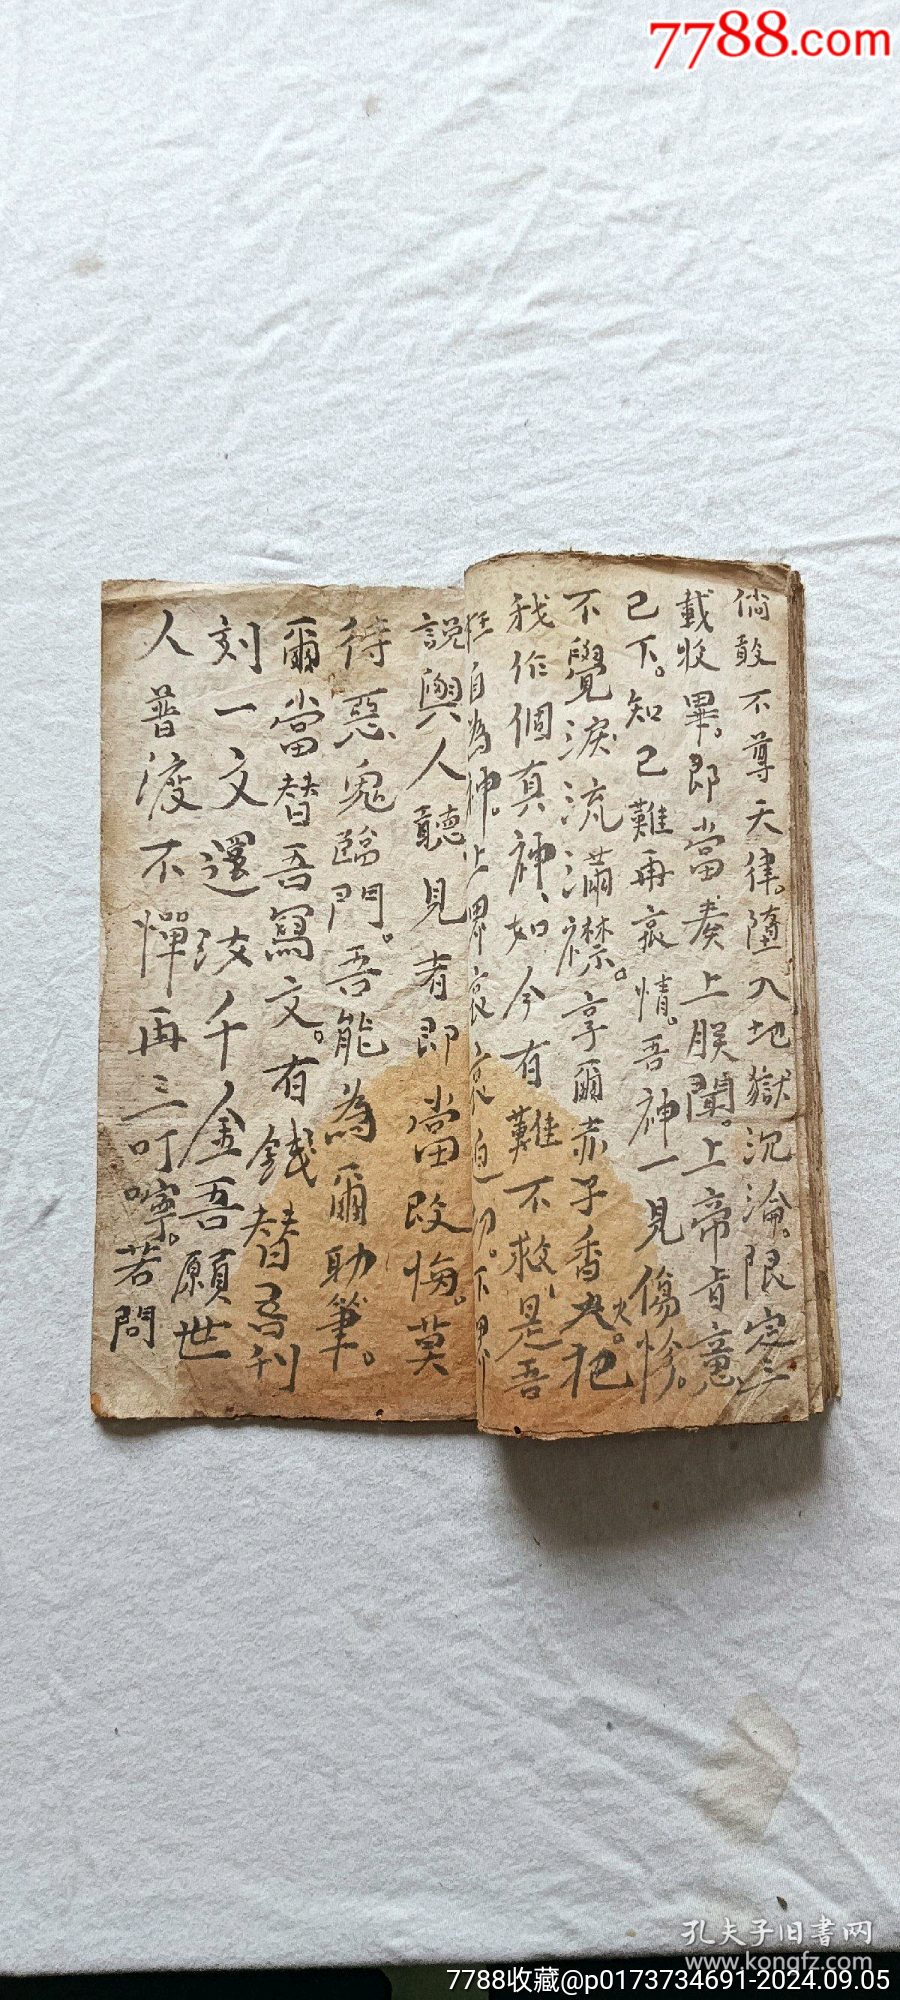 7788.com
倘敢不尊天律。墮入地獄沉淪。限定三
載收畢。即當奏上朕聞。上帝旨意
已下。知己難再哀情。吾神一見傷慘。
不覺淚流滿襟。享爾赤子香火。把
我作個真神、如今有難不救、是吾
枉自為神。上界哀完迫切。下界
說與人聽見者即當改悔。莫
待惡鬼臨門。吾能為爾助筆。
爾當替吾寫文。有錢替吾刊
刻一文還汝千金吾願世
人普渡不憚再三叮嚀。若問
孔夫子旧書网
www.kongfz.com
7788收藏@p0173734691-2024.09.05